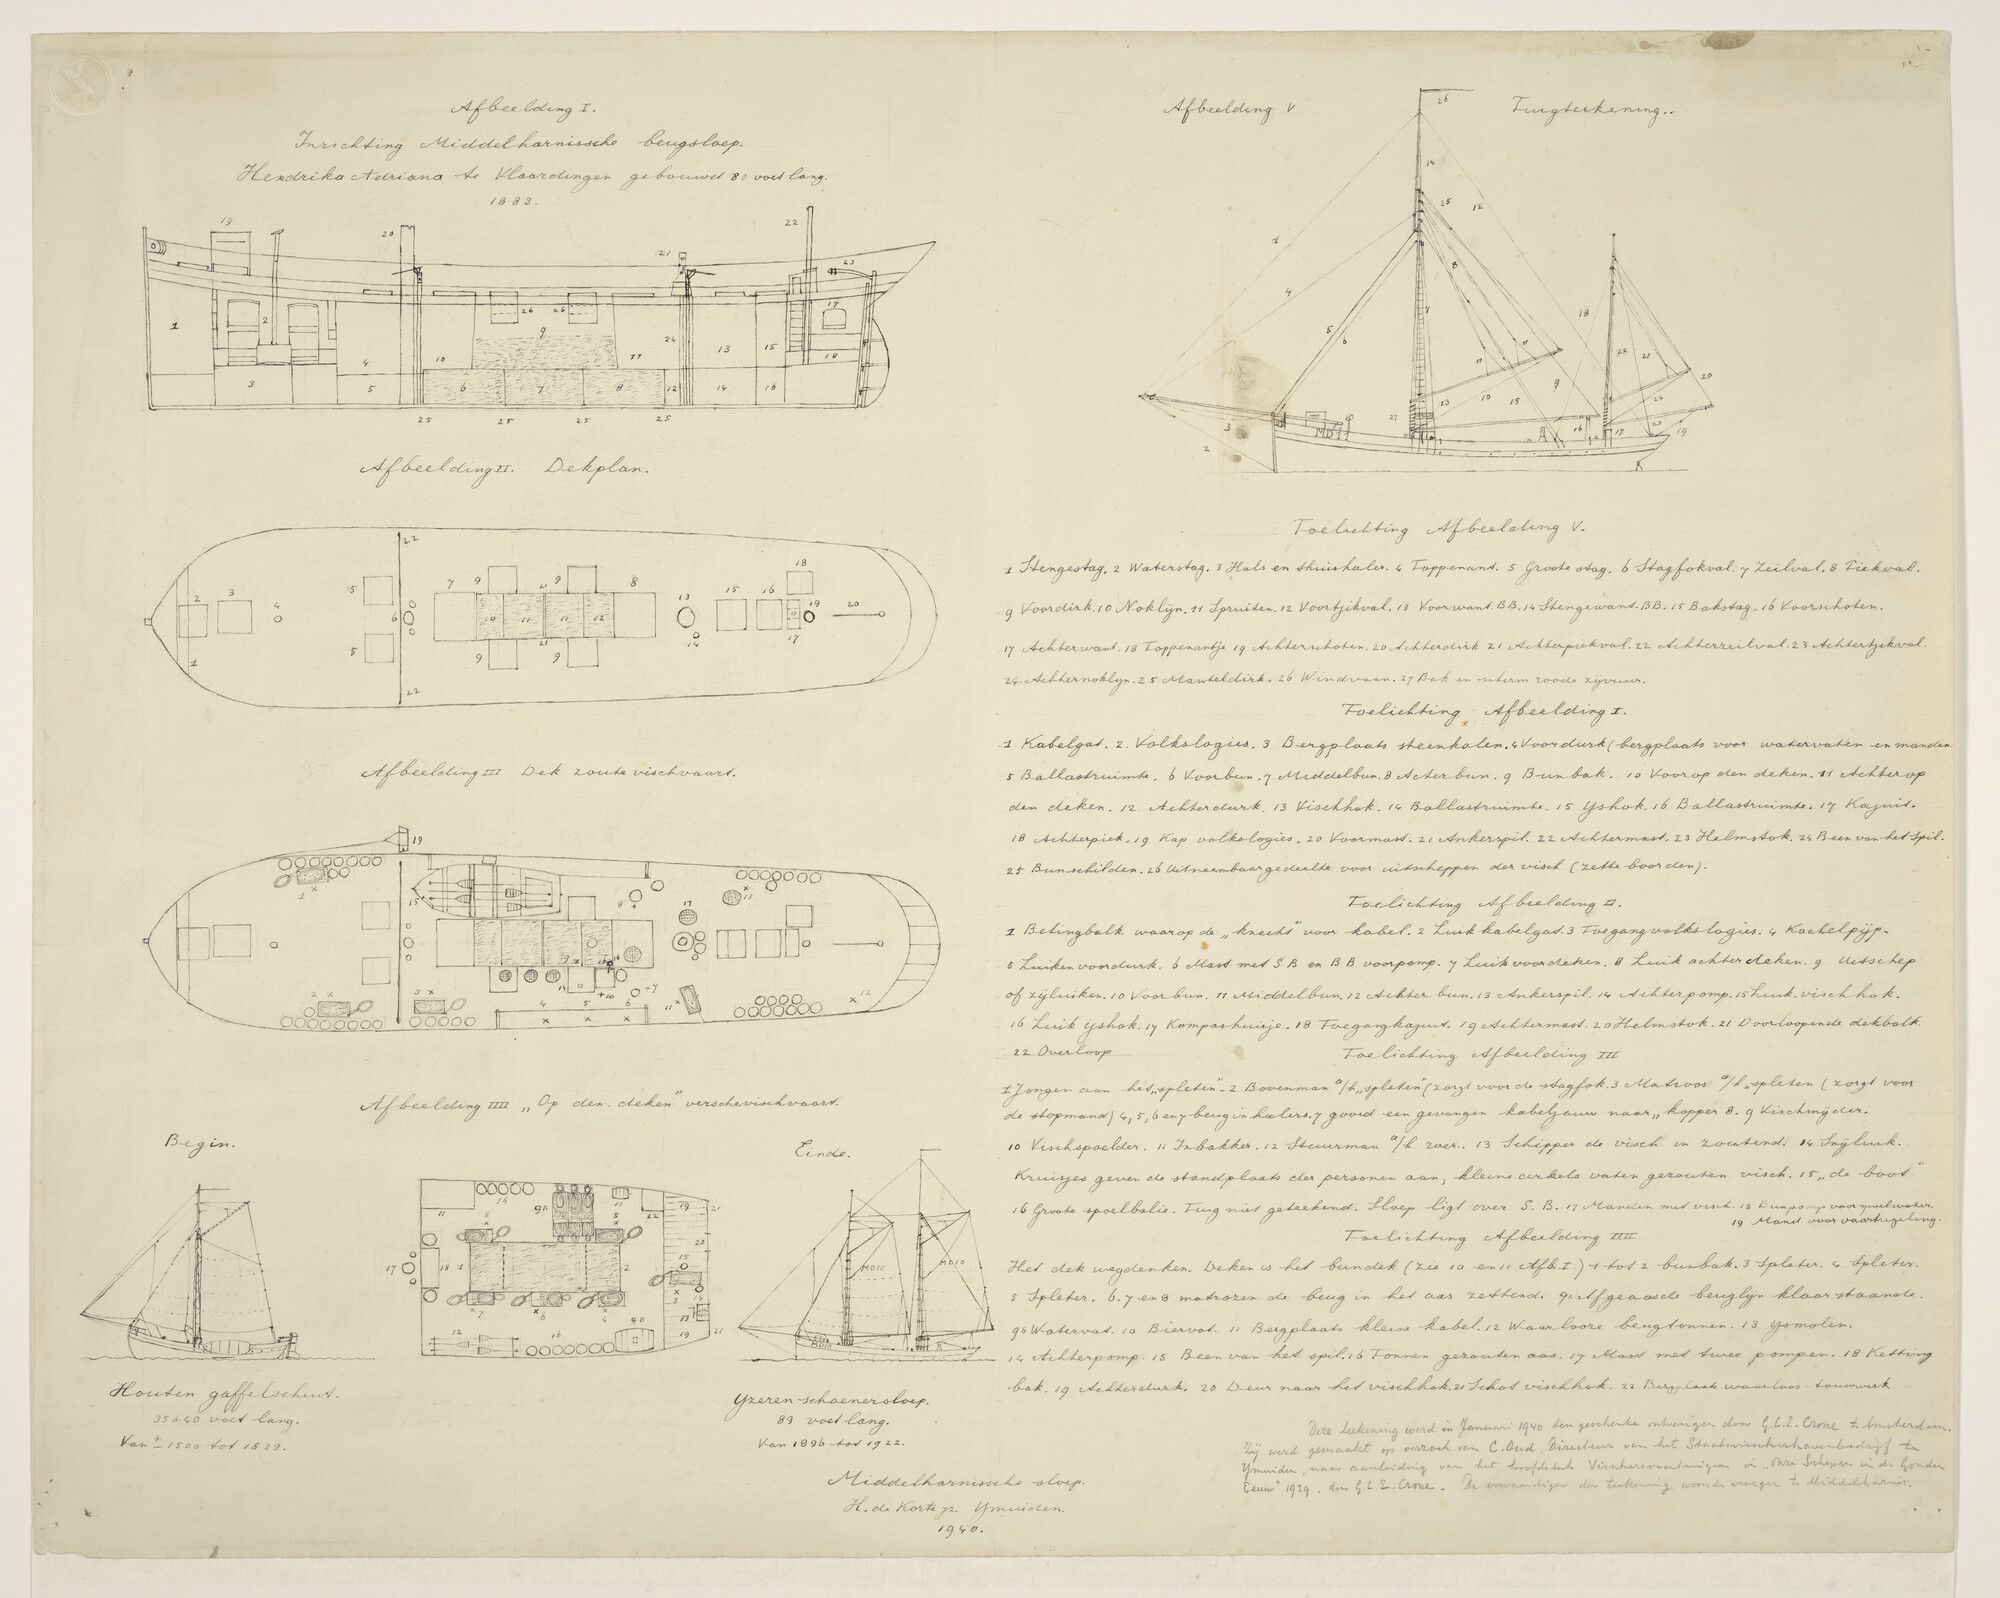 Afbeelding I.
Inrichting Middelharnissche beugsloep.
Hendrika Adriana te Vlaardingen gebouwd 80 voet lang.
1883.
Afbeelding II. Dekplan.
Afbeelding III Dek zoute vischvaart.
Afbeelding IIII „Op den deken" verschevischvaart.
Begin.
Einde.
MD10
MD10
MD10
Houten gaffelschuit.
35 à 40 voet lang.
Van ± 1500 tot 1829.
Yzeren-schoenersloep.
89 voet lang.
Van 1896 tot 1922.
Middelharnissche sloep.
H. de Korte jr. Ymuiden.
1940.
Afbeelding V
Tuigteekening..
Toelichting Afbeelding V.
1 Stengestag. 2 Waterstag. 3 Hals en thuishaler. 4 Toppenant. 5 Groote stag. 6 Stagfokval. 7 Zeilval. 8 Piekval.
9 Voordirk. 10 Noklyn. 11 Spruiten. 12 Voortjikval. 13 Voorwant. BB. 14 Stengewant. BB. 15 Bakstag. 16 Voorschoten.
17 Achterwant. 18 Toppenantje 19 Achterschoten. 20 Achterdirk 21 Achterpiekval. 22 Achterzeilval. 23 Achtertjikval.
24 Achternoklyn. 25 Manteldirk. 26 Windvaan. 27 Bak en scherm roode zijvuur.
Toelichting Afbeelding I.
1 Kabelgat. 2. Volkslogies. 3 Bergplaats steenkolen. 4 Voordurk (bergplaats voor watervaten en manden
5 Ballastruimte. 6 Voorbun. 7 Middelbun. 8 Acterbun. 9 Bunbak. 10 Voorop den deken. 11 Achterop
den deken. 12 Achterdurk. 13 Vischhok. 14 Ballastruimte. 15 Yshok. 16 Ballastruimte. 17 Kajuit.
18 Achterpiek. 19 Kap volkslogies. 20 Voormast. 21 Ankerspil. 22 Achtermast. 23 Helmstok. 24 Been van het Spil.
25 Bunschilden. 26 Uitneembaar gedeelte voor uitscheppen der visch (zette boorden).
Toelichting Afbeelding II.
1 Betingbalk waarop de „knecht" voor kabel. 2 Luik kabelgat. 3 Toegang volkslogies. 4 Kachelpijp.
5 Luiken voordurk. 6 Mast met SB en BB voorpomp. 7 Luik voordeken. 8 Luik achter deken. 9 Uitschep
of zijluiken. 10 Voorbun. 11 Middelbun. 12 Achter bun. 13 Ankerspil. 14 Achterpomp. 15 Luik vischhok.
16 Luik yshok. 17 Kompashuisje. 18 Toegang kajuit. 19 Achtermast. 20 Helmstok. 21 Doorloopende dekbalk.
22 Overloop
Toelichting Afbeelding III
1 Jongen aan het „spleten". 2 Bovenman a/h „spleten" (zorgt voor de stagfok. 3 Matroos a/h „spleten (zorgt voor
de stopmand) 4, 5, 6 en 7 beuginhalers. 7 gooid een gevangen kabeljauw naar „kapper 8. 9 Vischsnijder.
10 Vischspoelder. 11 Inbakker. 12 Stuurman a/h roer. 13 Schipper de visch in zoutend. 14 Snijluik.
Kruisjes geven de standplaats der personen aan, kleine cirkels vaten gezouten visch. 15 „de boot"
16 Groote spoelbalie. Tuig niet geteekend. Sloep ligt over S.B. 17 Manden met visch. 18 Bunpomp voor spoelwater.
19 Mand voor vaartregeling.
Toelichting Afbeelding IIII
Het dek wegdenken. Deken is het bundek (zie 10 en 11 Afb. I) 1 tot 2 bunbak. 3 Spleter. 4 Spleter.
5 Spleter. 6. 7 en 8 matrozen de beug in het aas zettend. 9a Afgeaasde beuglijn klaar staande.
9b Watervat. 10 Biervat. 11 Bergplaats kleine kabel. 12 Waarlooze beugtonnen. 13 Ysmolen.
14 Achterpomp. 15 Been van het spil. 16 Tonnen gezouten aas. 17 Mast met twee pompen. 18 Ketting
bak. 19 Achterdurk. 20 Deur naar het vischhok. 21 Schot vischhok. 22 Bergplaats waarloos touwwerk
Deze teekening werd in Januari 1940 ten geschenke ontvangen door G.C.E. Crone te Amsterdam.
Zij werd gemaakt op verzoek van C. Oud, Directeur van het Staatsvisschershavenbedrijf te
Ymuiden, naar aanleiding van het hoofdstuk Visschersvaartuigen in „Onze Schepen in de Gouden
Eeuw" 1939. door G.C.E. Crone. De vervaardiger der teekening woonde vroeger te Middelharnis.